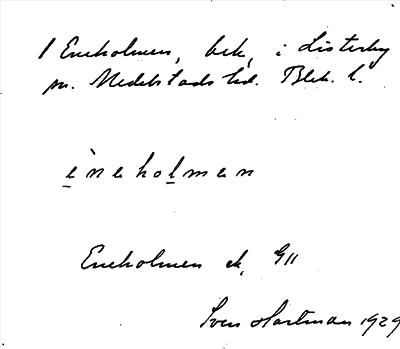 1 Eneholmen, beb., i Listerby
sn. Medelstads hd. Blek. l.
è̱nahoḻmen
Eneholmen ek, G11
Sven Hartman 1929